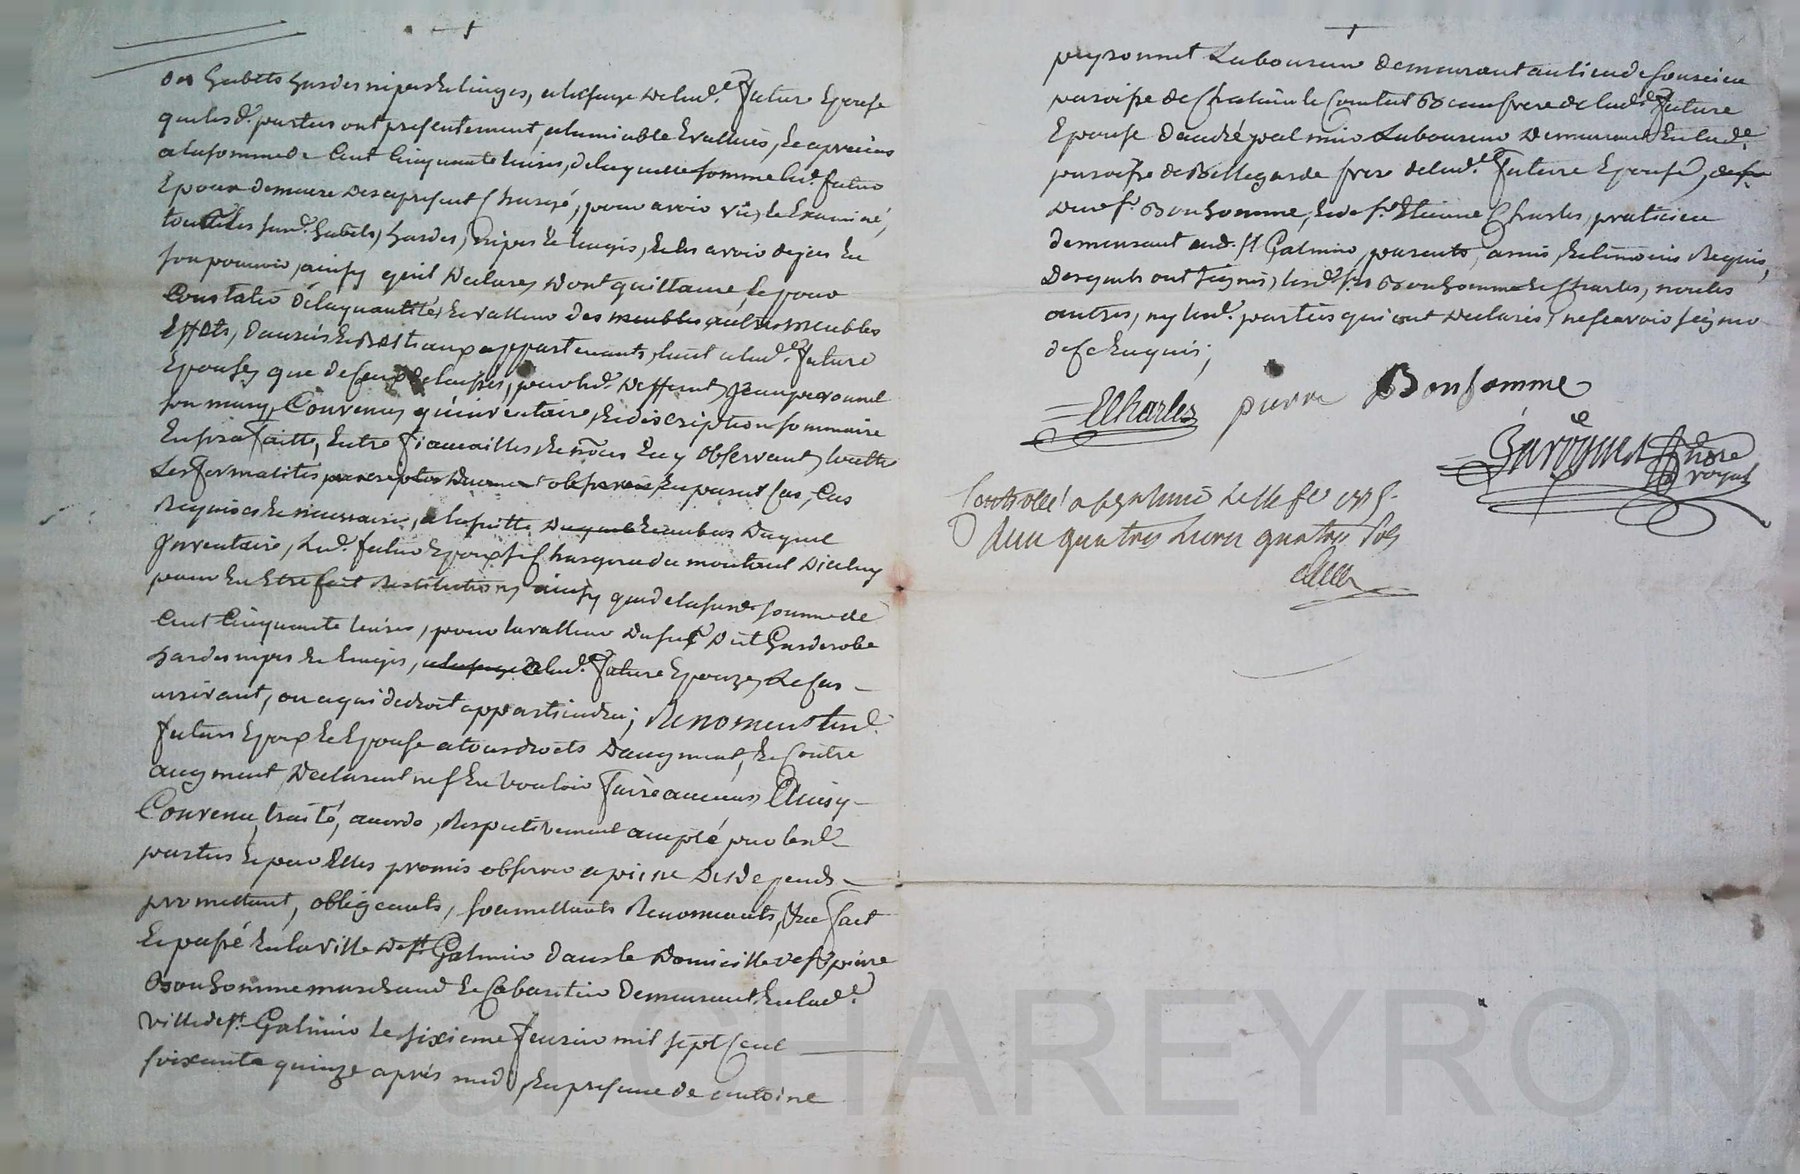 des habits hardes nipes & linges, a lusage de lad.e future Epouse
que les d. parties ont presentement, alamiable Evalluès, & apreciès
a la somme de Cent Cinquante livres, de laquelle somme led. futur
Epoux demeure des apresent Chargé, pour avoir vû, & Examiné,
toutes les susd. habits, hardes, nipes & linges, & les avoir dejea En
son pouvoir, ainsy quil Declare, Dont quittance, & pour
Constater de la quantité, & valleur des meubles, autres meubles
Effets, danrés & Bestiaux appartenants, tant a lad.e future
Epouse, que de ceux delaissés, par led. deffunt Jean peyronnet
son mary, Convenu, qu'inventaire, & discription sommaire
En sera faitte, Entre fiancailles & nôces En y observant, toutte
Les formalités En pareil cas, Cas
Requises & necessaires, a la suitte Duquel
Inventaire, Led. futur Epoux se Chargera du montant Diceluy
pour En Etre fait Restitution, ainsy que de la susd. somme de
Cent Cinquante livres, pour la valleur Dusus Dit Garderobe
hardes nipes & linges, a lusage de lad.e future Epouze, Le cas
arrivant, ou a qui de droit appartiendra; Renoncent lesd.
futurs Epoux & Epouse a tous droits Daugment, & Contre
augment Declarent nes En vouloir faire aucuns, Ainsy
Convenu, traité, accordé, Respectivement accepté par lesd.
parties & par Elles promis observer a peine de Depends
promettant, obligeants, soumettants Renonceants, &ca fait
& passé En la ville de St Galmier dans le Domicille de Sr pierre
Bonhomme marchand & Cabaretier demeurant En lad.e
ville de St Galmier le sixieme fevrier mil sept Cent
soixante quinze après midi, En presence de antoine
peyronnet Laboureur demeurant au lieu de
paroisse de Chatelu le Comtal Beaufrere de lad.e future
Epouse d'andré Laboureur Demeurant En lad.e
paroisse de Bellegarde frere de lad.e future Epouse,
dud. Sr Bonhomme, & de Sr Etienne Charles, praticien
demeurant aud. St Galmier, parents, amis, & temoins Requis,
Desquels ont signés, lesd. Srs Bonhomme & Charles, non les
autres, ny lesd. parties qui ont Declarés, ne sçavoir signer
de ce Enquis;
ECharles pierre Bonhomme
royal
Controllé a St galmier le
Reçu quatres Livres quatres sols